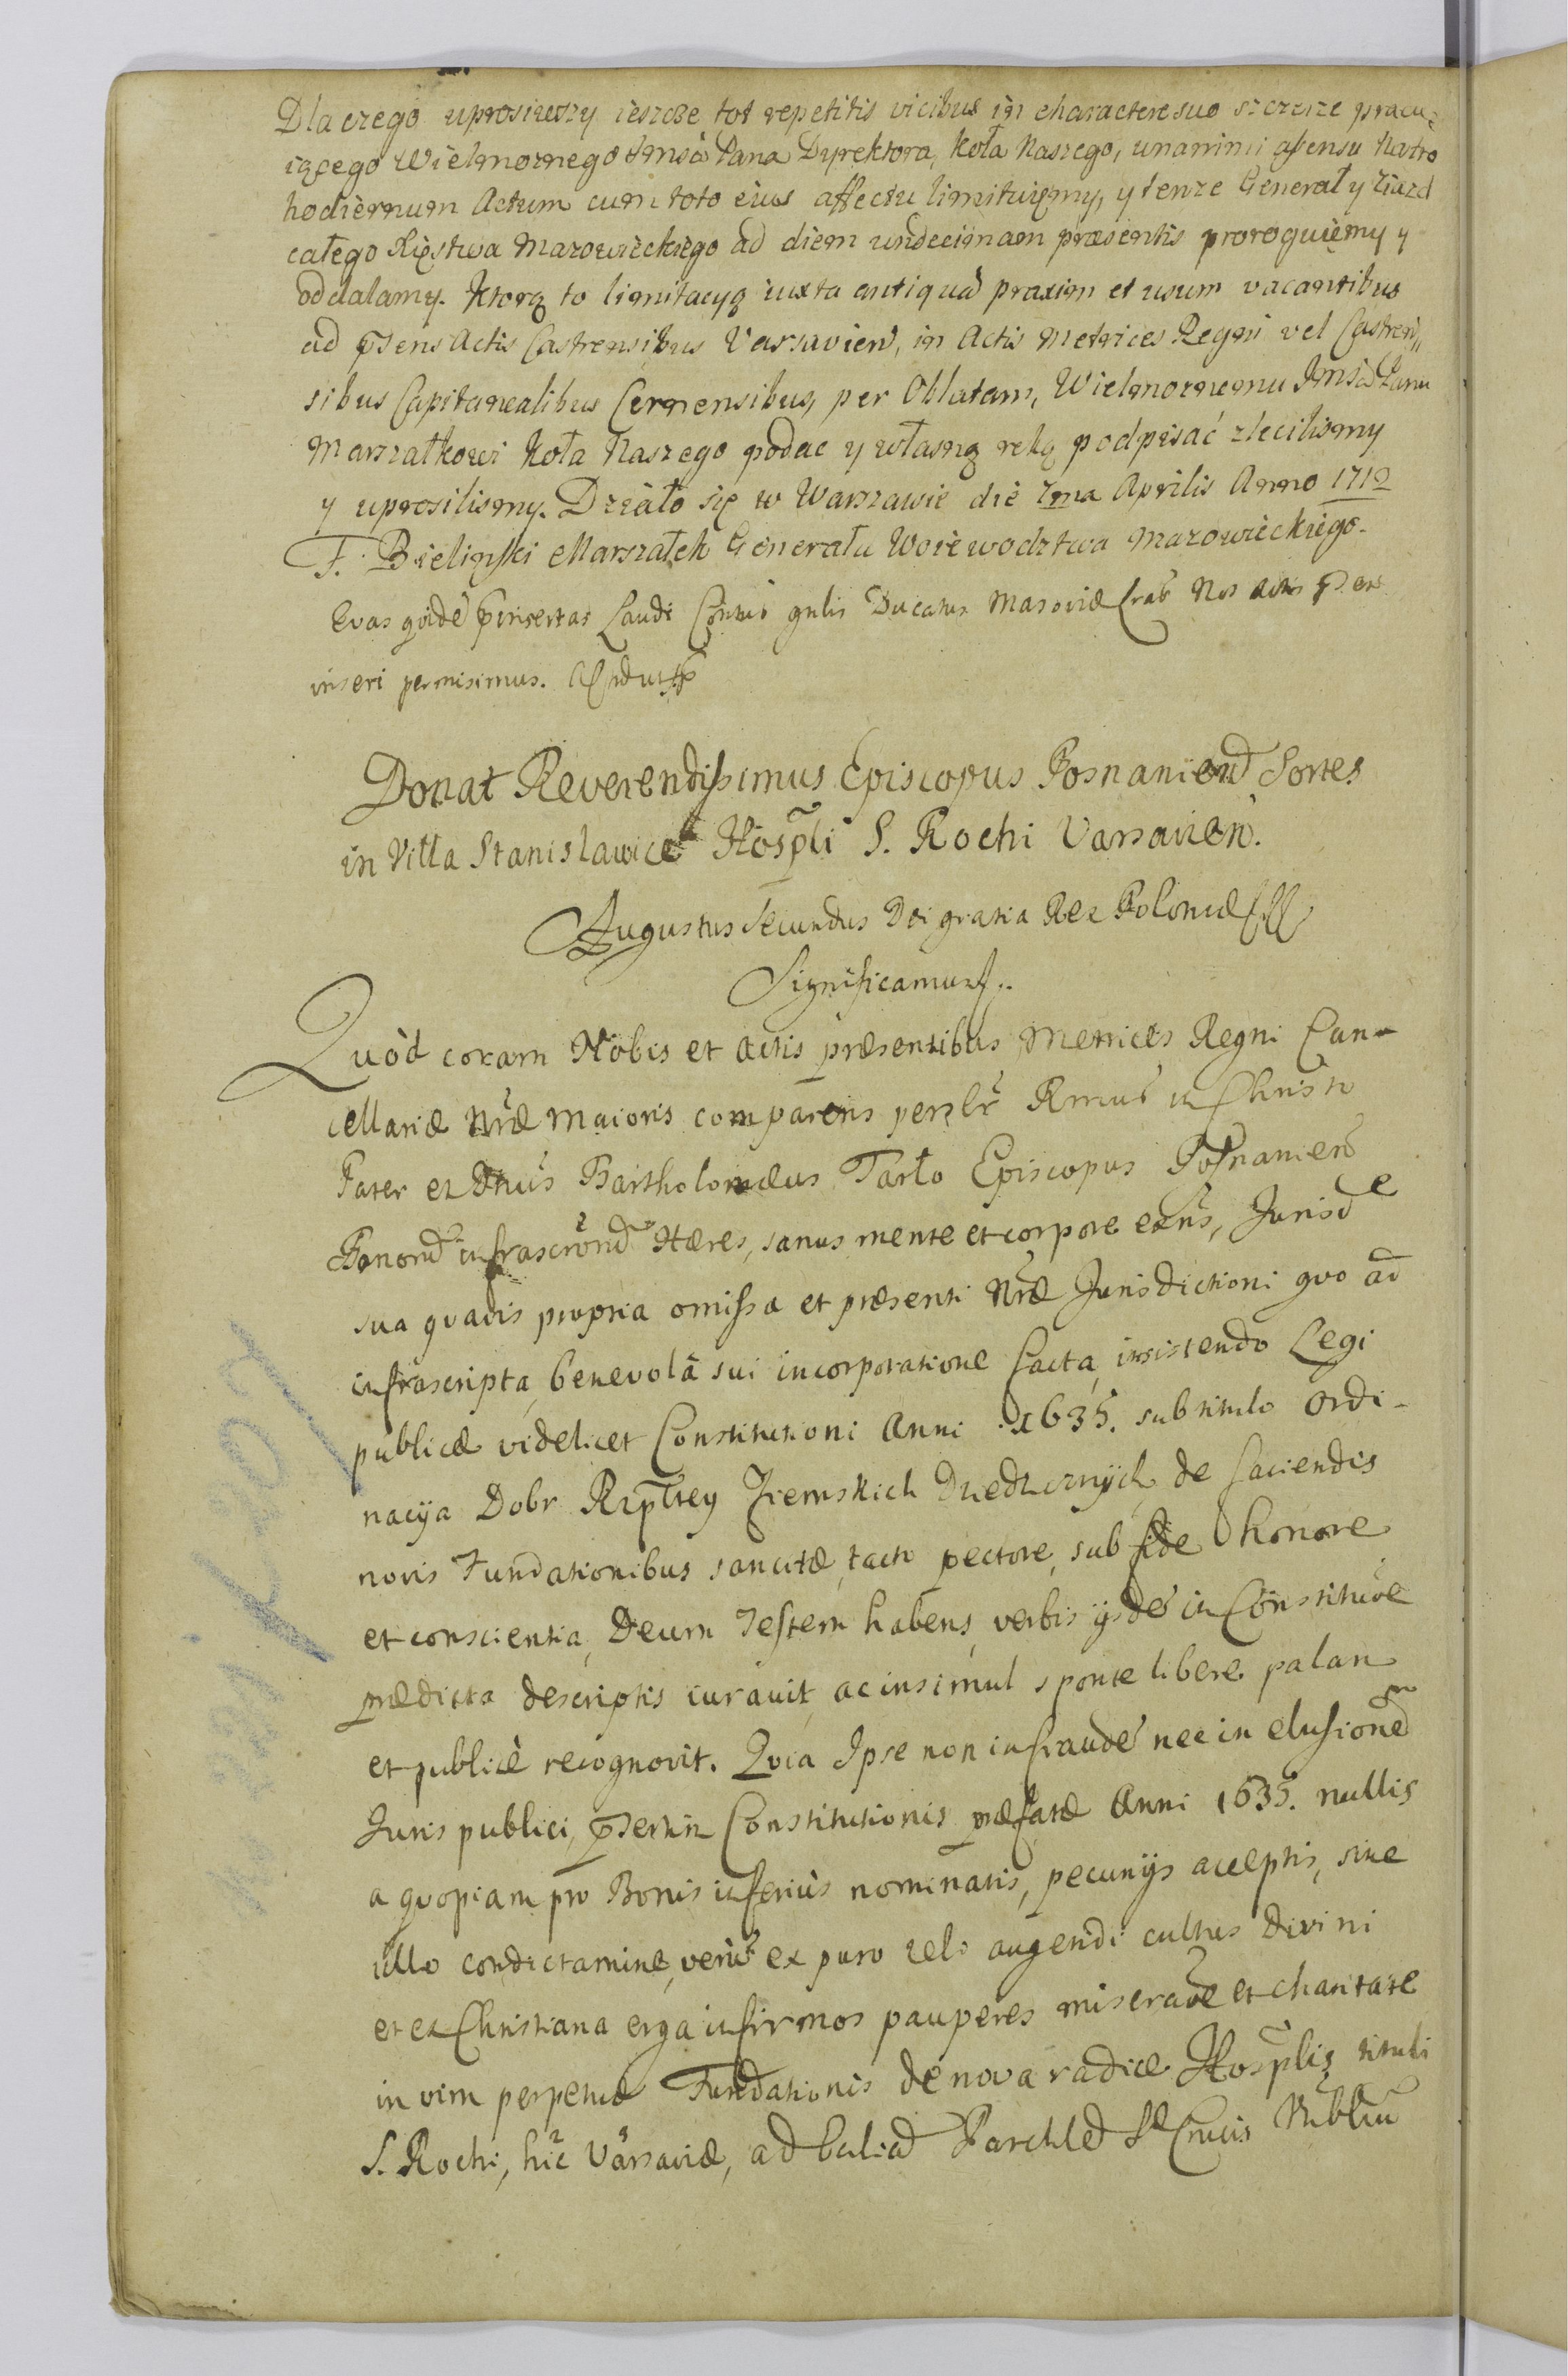 Dla czego uprosiwszy ieszcze tot repetitis vicibus in charactere suo szczerze pracu-
iącego Wielmożnego Jmsci Pana Dyrektora, Koła Naszego, unanimi assensu Nro
hodiernum Actum cum toto eius affectu limituięmy, y tenże Generał y ziazd
całego Xięstwa Mazowieckiego ad diem undecimam præsentis proroguięmy y
oddalamy. Ktorą to limitacyą iuxta antiquã praxim et usum vacantibus
ad p̃sens Actis Castrensibus Varsavien̄, in Actis Metrices Regni vel Castren„
sibus Capitanealibus Cernensibus, per Oblatam, Wielmożnemu Jmsci Panu
Marszałkowi Koła Naszego podac y własną ręką podpisać zlecilismy
y uprosilismy. Działo się w Warszawie die 7ma Aprilis Anno 1712
F. Bielinski Marszałek Generału Woiewodztwa Mazowieckiego.
Evas qvidẽ p̃insertas Laudi Contus gnlis Ducatus Masoviæ Nos Actis p̃sen
inseri permisimus.
Donat Reverendissimus Episcopus Posnanien̄ Sortes
in Villa Stanislawice Hosp̃li S. Rochi Varsavien̄.
Augustus Secundus Dei gratia Rex Poloniæ
Significamus.
Quòd coram Nobis et actis præsentibus Metrices Regni Can-
cellariæ Nr̃æ Maioris comparens persl̃r Rmus in Christo
Pater et Dnus Bartholomæus Tarło Episcopus Posnanien̄
Bonor̄ infrascr̃or̄ Hæres, sanus mente et corpore exñs, Jurisdẽ
sua qvavis propria omissa et præsenti Nr̃æ Jurisdictioni qvo ad
infrascripta, benevolâ sui incorporatione facta, insistendo Legi
publicæ videlicet Constitutioni Anni 1635. sub titulo Ordi-
nacya Dobr Rzp̃ltey Ziemskich Dziedzicznych, de faciendis
novis Fundationibus sancitæ, tacto pectore, sub fide honore
et conscientia, Deum Testem habens, verbis ijsdẽ in Constitũõe
prædicta descriptis iuravit, ac insimul sponte libere palam
et publicè recognovit. Qvia Ipse non in fraudẽ nec in elusionẽ
Juris publici, p̃sertim Constitutionis præfatæ Anni 1635. nullis
a qvopiam pro Bonis inferiùs nominatis, pecunijs acceptis, sine
ullo condictamine, verũ ex puro zelo augendi cultus Divini
et ex Christiana erga infirmos pauperes miseraõe et charitate
in vim perpetuæ Fundationis de nova radice Hosp̃lis tituli
S. Rochi, hic Varsaviæ, ad Eccliã Parchlẽ Sæ Crucis